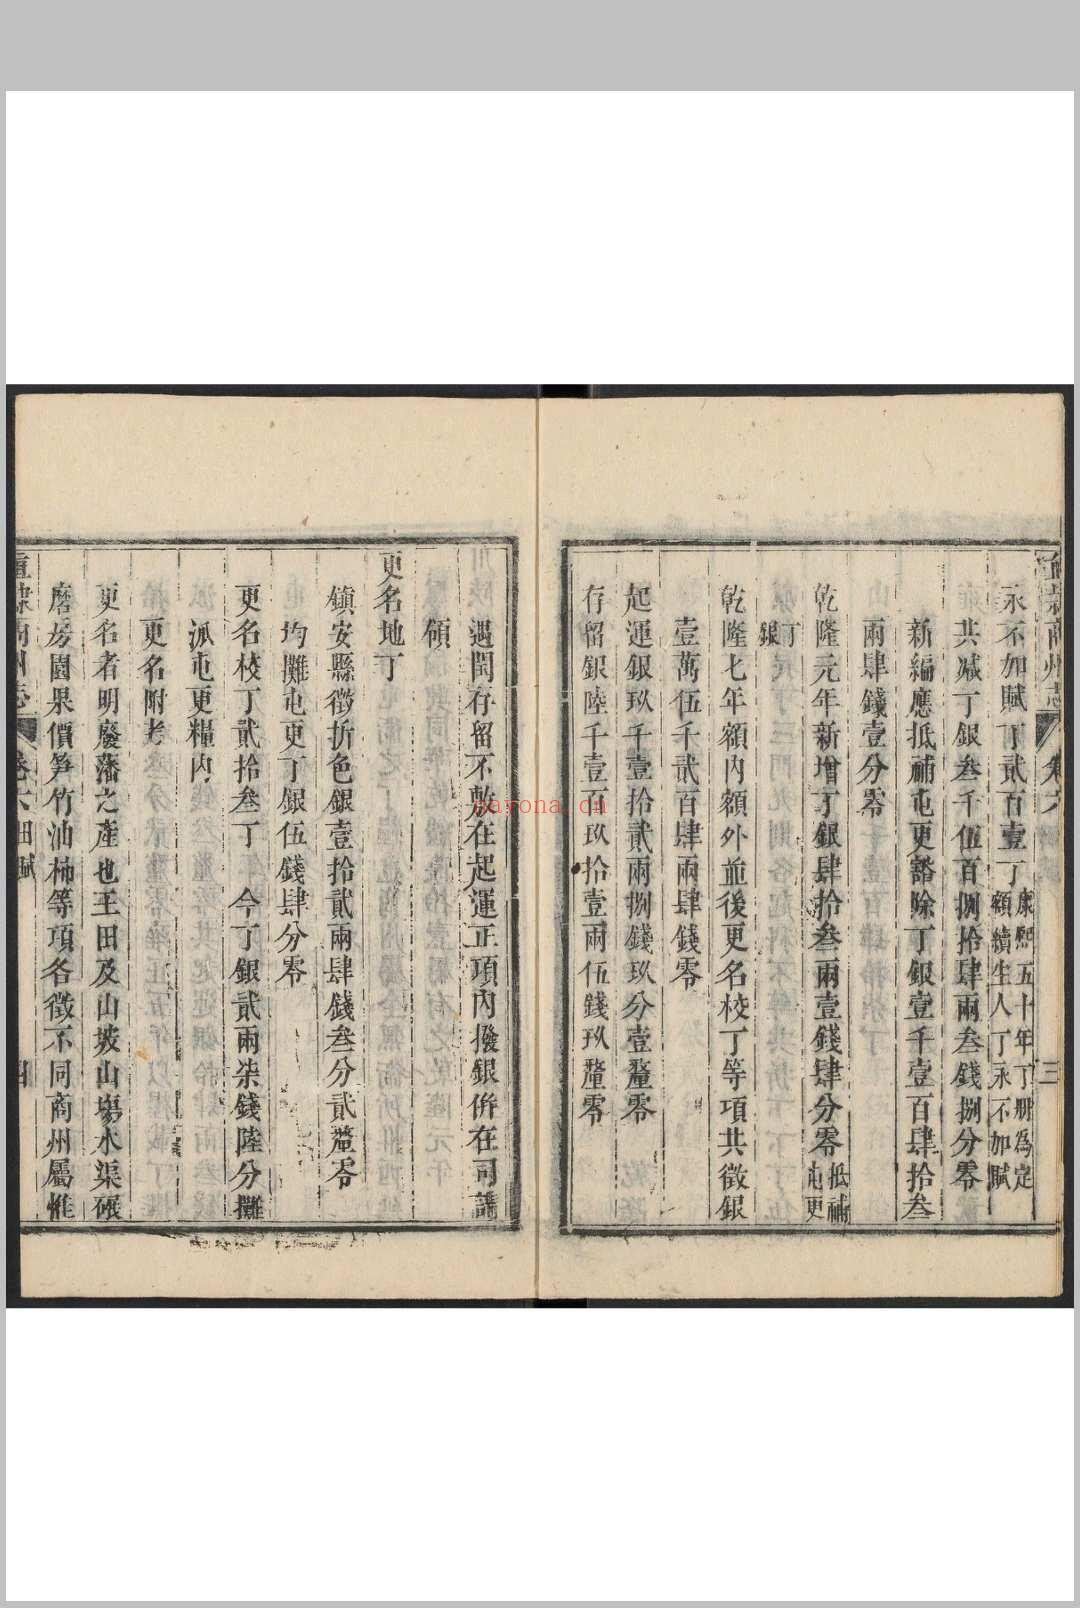 直隸商州志 卷六 三
永不加賦丁貳百壹丁康熙五十年丁冊為定額續生人丁永不加賦
共減丁銀叁千伍百捌拾肆兩叁錢捌分零
新編應抵補屯更豁除丁銀壹千壹百肆拾叁
兩肆錢壹分零
乾隆元年新增丁銀肆拾叁兩壹錢肆分零抵補屯更
丁銀
乾隆七年額內額外並後更名校丁等項共徵銀
壹萬伍千貳百肆兩肆錢零
起運銀玖千壹拾貳兩捌錢玖分壹釐零
存留銀陸千壹百玖拾壹兩伍錢玖釐零
遇閏存留不敷在起運正項內撥銀倂在司請
領
更名地丁
鎮安縣徵折色銀壹拾貳兩肆錢叁分貳釐零
均攤屯更丁銀伍錢肆分零
更名校丁貳拾叁丁 今丁銀貳兩柒錢陸分攤
派屯更糧內
更名附考
更名者明廢藩之產也王田及山坡山塲水渠碾
磨房園果價笋竹油柿等項各徵不同商州屬惟
直隸商州志 卷六 田賦 四
sayona.cn